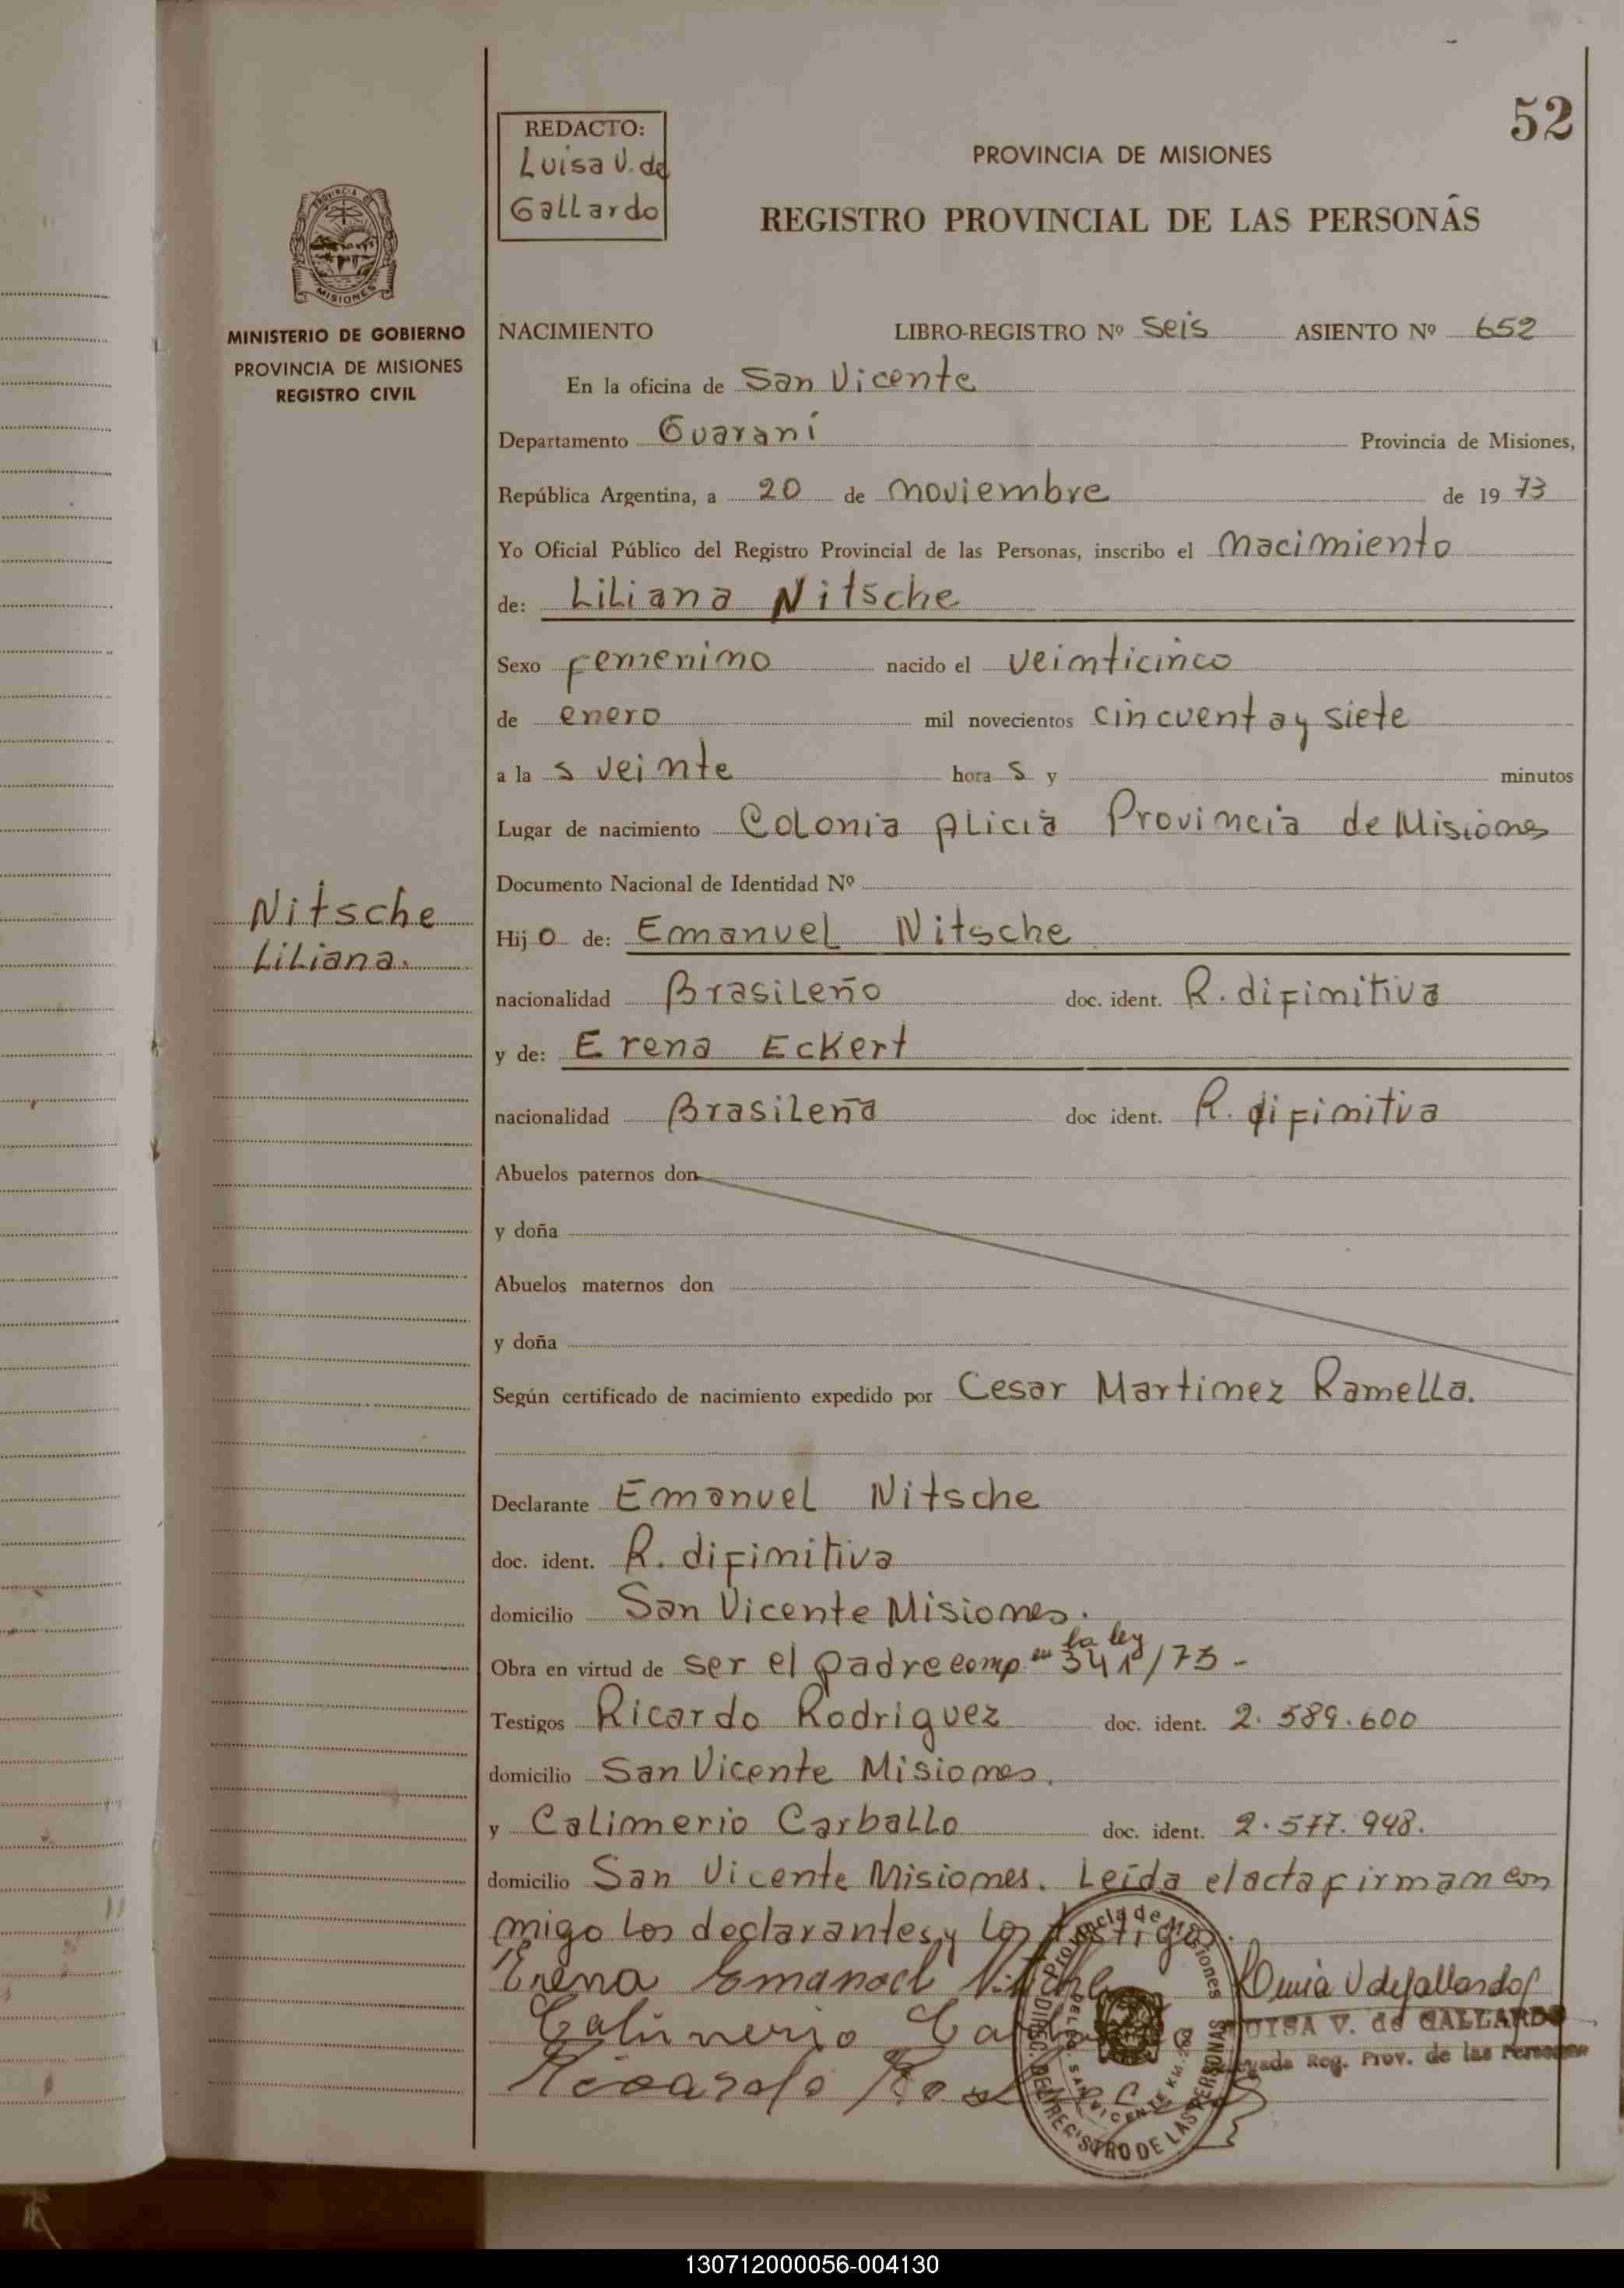 52
REDACTO:
Luisa V. de
Gallardo
PROVINCIA DE MISIONES
REGISTRO PROVINCIAL DE LAS PERSONAS
PROVINCIA DE
MISIONES
MINISTERIO DE GOBIERNO
PROVINCIA DE MISIONES
REGISTRO CIVIL
NACIMIENTO LIBRO-REGISTRO Nº Seis ASIENTO Nº 652
En la oficina de San Vicente
Departamento Guaraní Provincia de Misiones,
República Argentina, a 20 de noviembre de 19 73
Yo Oficial Público del Registro Provincial de las Personas, inscribo el nacimiento
de: Liliana Nitsche
Sexo femenino nacido el veinticinco
de enero mil novecientos cincuenta y siete
a la s veinte hora s y minutos
Lugar de nacimiento Colonia Alicia Provincia de Misiones
Documento Nacional de Identidad Nº
Nitsche
Liliana.
Hij o de: Emanuel Nitsche
nacionalidad Brasileño doc. ident. R. difinitiva
y de: Erena Eckert
nacionalidad Brasileña doc ident. R. difinitiva
Abuelos paternos don
y doña
Abuelos maternos don
y doña
Según certificado de nacimiento expedido por Cesar Martinez Ramella.
Declarante Emanuel Nitsche
doc. ident. R. difinitiva
domicilio San Vicente Misiones.
Obra en virtud de ser el padre comp. en la ley 341/73 -
Testigos Ricardo Rodriguez doc. ident. 2.589.600
domicilio San Vicente Misiones.
y Calimerio Carballo doc. ident. 2.577.948.
domicilio San Vicente Misiones. Leída el acta firman con
migo los declarantes y los testigos.
Erena Emanoel Nitche
Calimerio
Ricardo
Luisa V de Gallardo
LUISA V. de GALLARDO
Reg. Prov. de las Personas
Provincia de Misiones
DIREC. DEL REGISTRO DE LAS PERSONAS
SAN VICENTE KM.
130712000056-004130